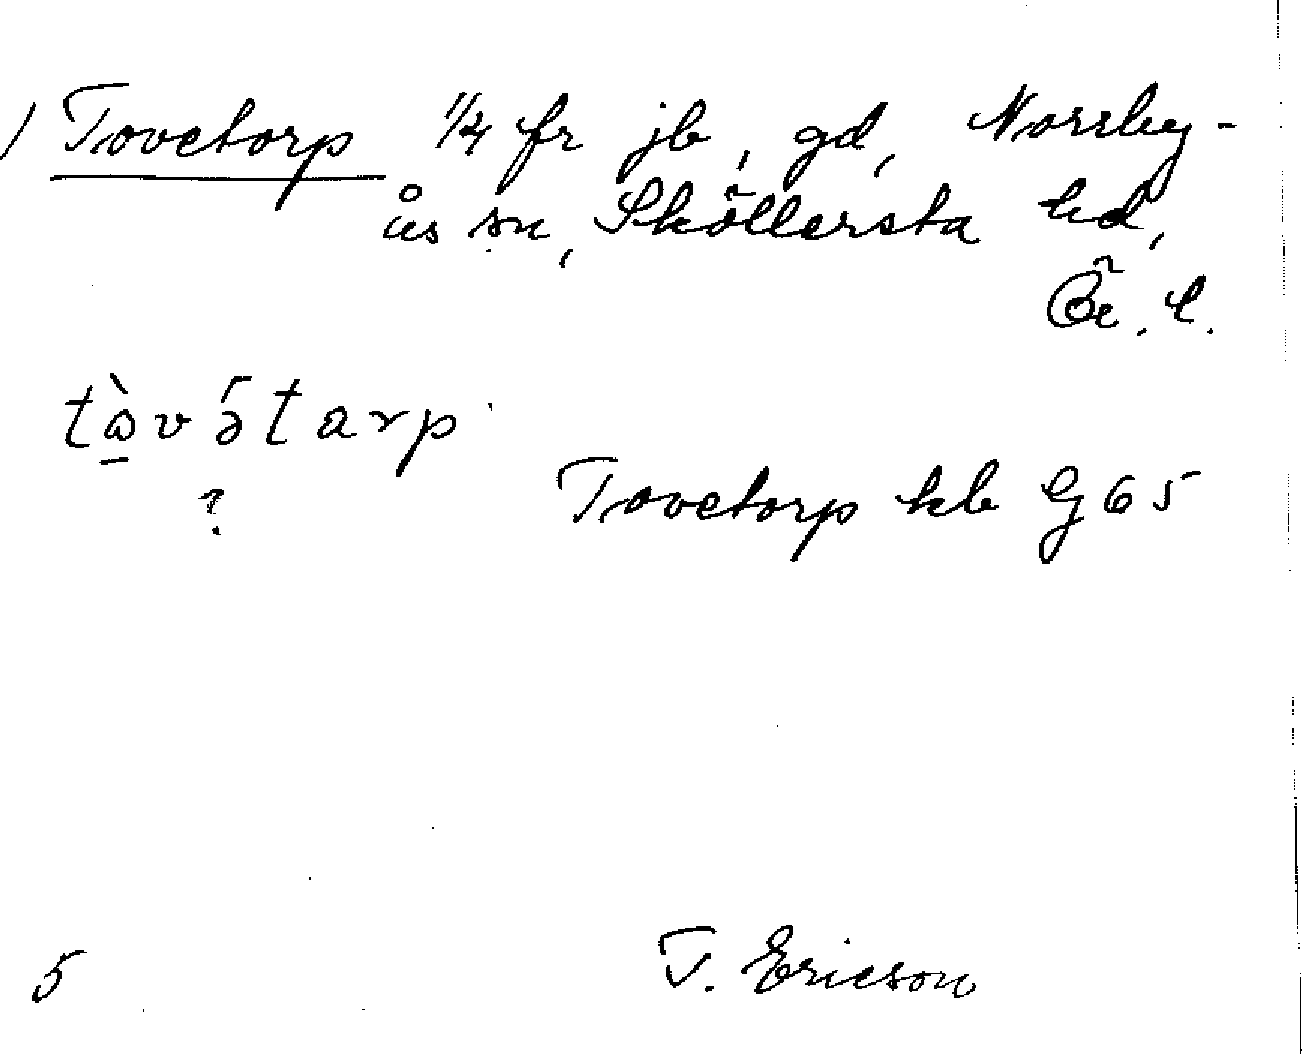 ) Tovetorp 1/4 fr jb, gd, Norrby-
ås sn, Sköllersta hd,
Ör. l.
tòvə́tarp
?
Tovetorp kb G65
5
T. Ericson